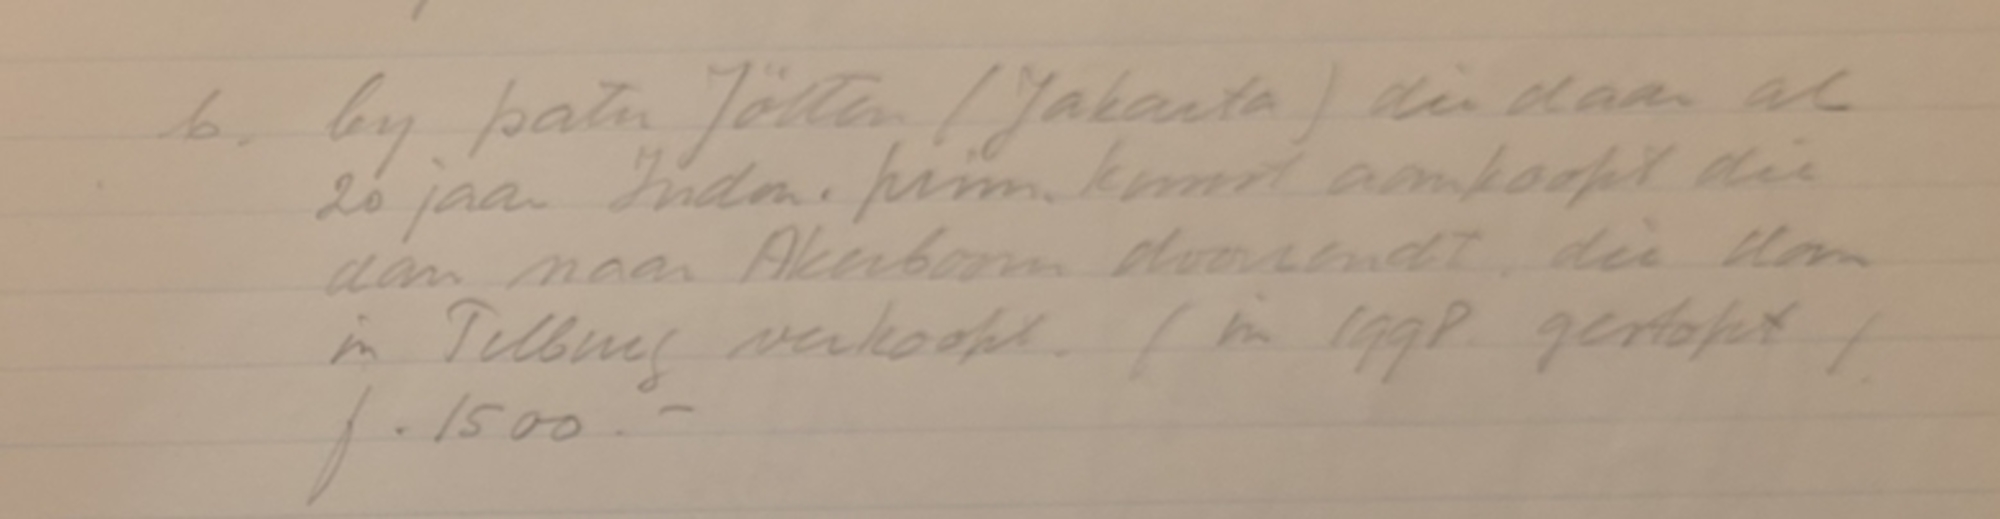 b. by pater Jötten (Jakarta) die daar al
20 jaar Indon. prim. kunst aankoopt die
dan naar Akerboom doorzendt, die dan
in Tilburg verkoopt. (in 1998 gestopt)
f. 1500.-